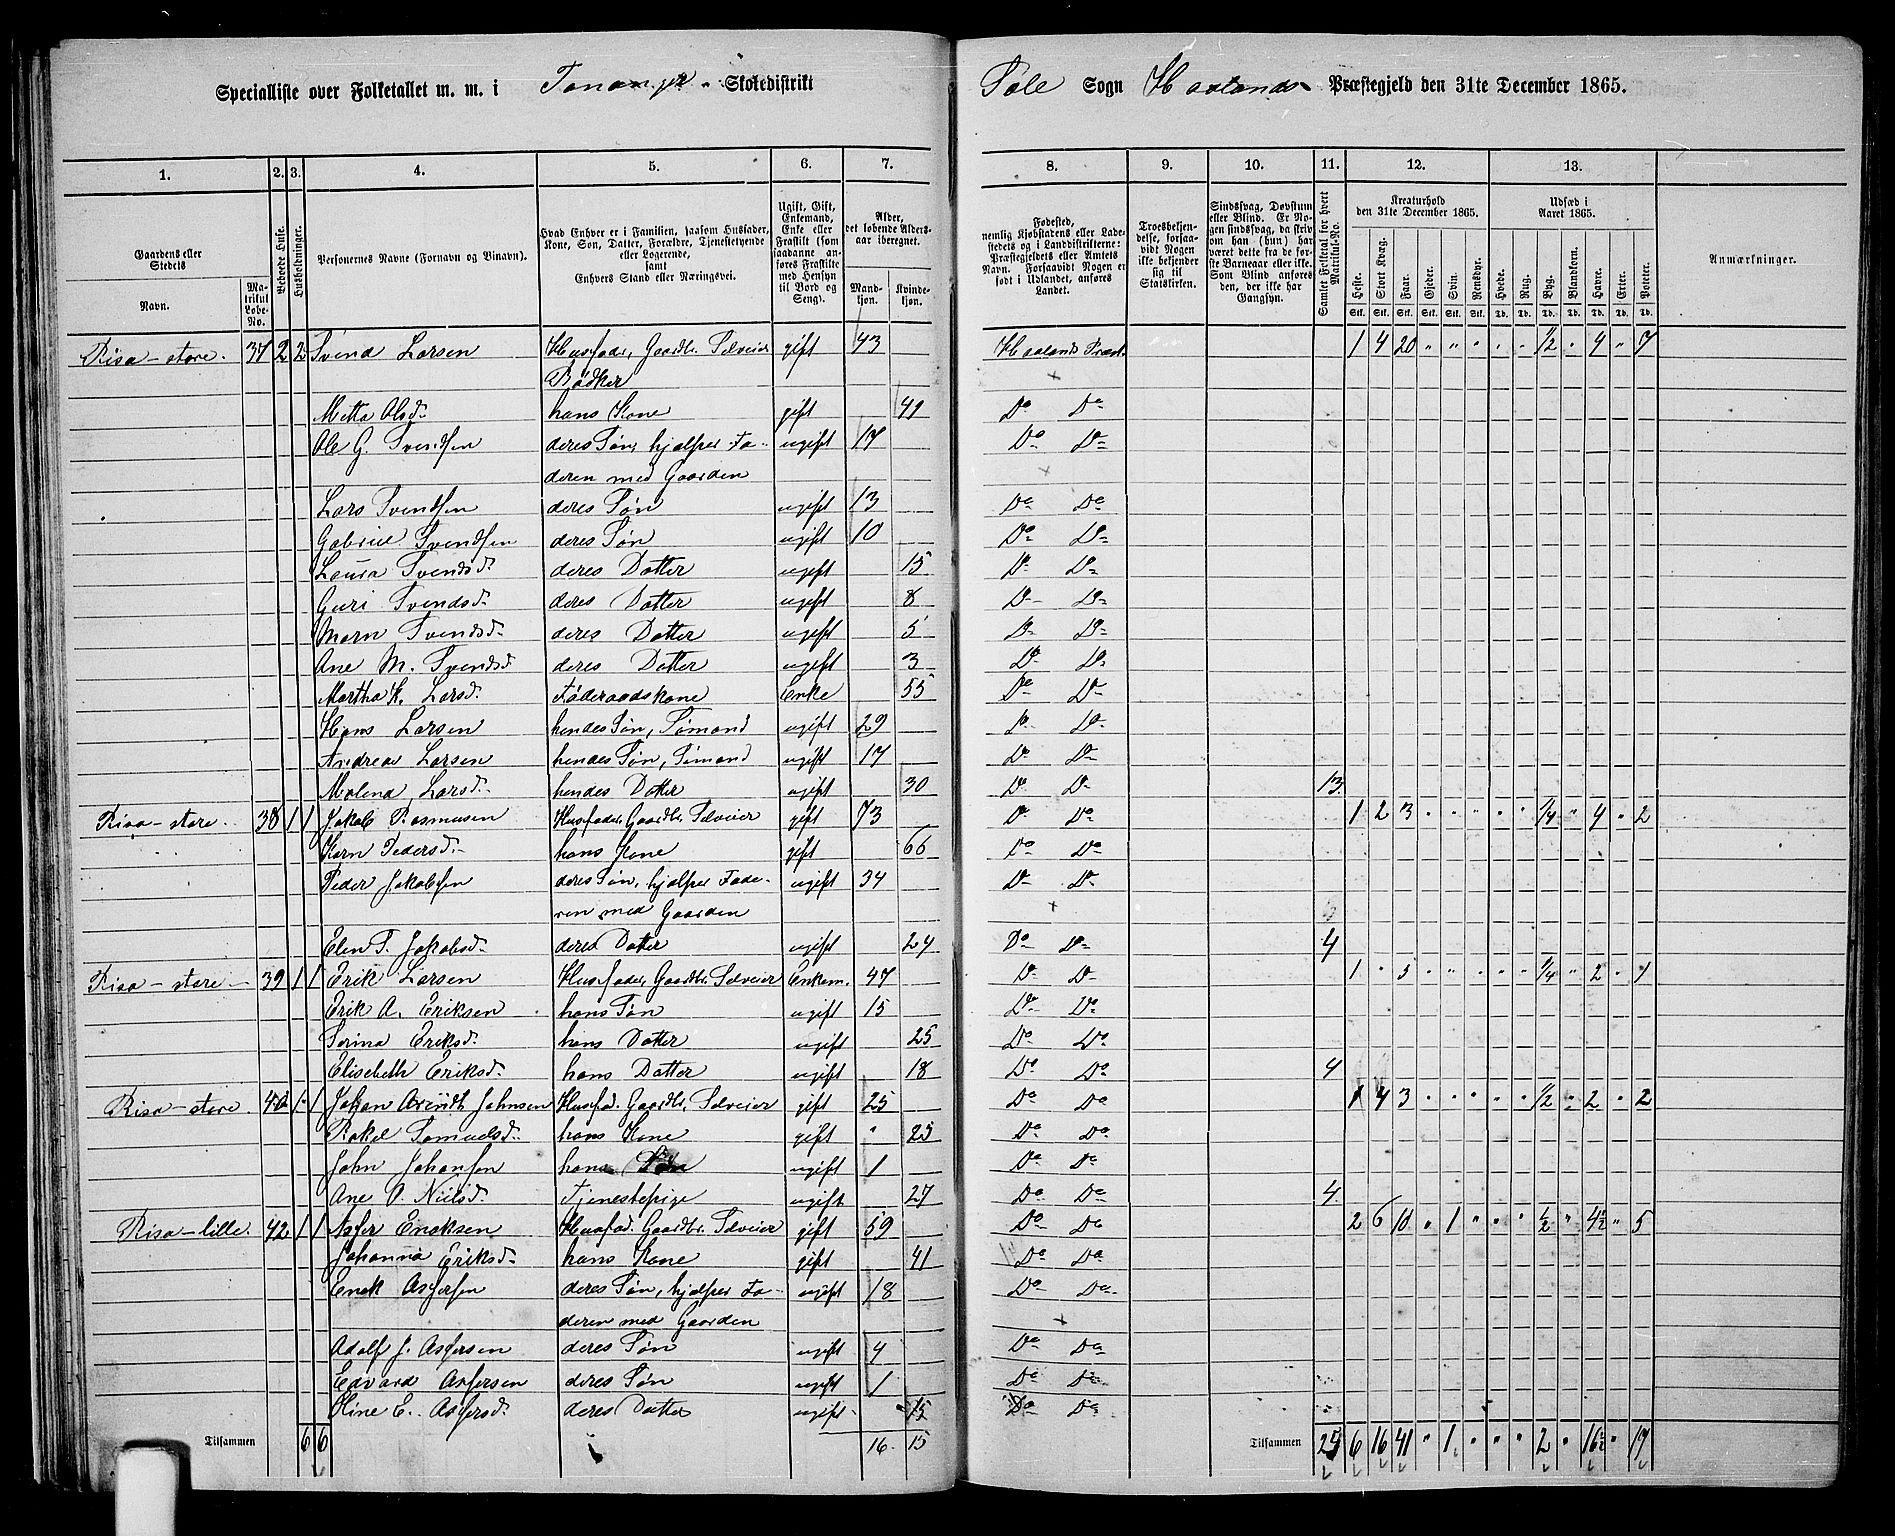 Specialliste over Folketallet m. m. i Tananger Skoledistrikt Sole Sogn Haalands Præstegjeld den 31te December 1865.
1. 2. 3. 4. 5. 6. 7. 8. 9. 10. 11. 12. 13.
Gaardens eller Stedets
Navn.
Matrikul Løbe-No.
Beboede Huse.
Husholdninger.
Personernes Navne (Fornavn og Binavn).
Hvad Enhver er i Familien, saasom Husfader, Kone, Søn, Datter, Forældre, Tjenestetyende eller Logerende, samt Enhvers Stand eller Næringsvei.
Ugift, Gift, Enkemand, Enke eller Fraskilt (som saadanne anføres Fraskilte med Hensyn til Bord og Seng).
Alder, det løbende Alders-aar iberegnet.
Mandkjøn. Kvindekjøn.
Fødested, nemlig Kjøbstadens eller Ladestedets og i Landdistrikterne: Præstegjeldets eller Amtets Navn. Forsaavidt Nogen er født i Udlandet, anføres Landet.
Troesbekjendelse, forsaavidt Nogen ikke bekjender sig til Statskirken.
Sindssvag, Døvstum eller Blind. Er Nogen sindssvag, da skrives om han (hun) har været dette fra de første Barneaar eller ikke. Som Blind anføres den, der ikke har Gangsyn.
Samlet Folketal for hvert Matrikul-No.
Kreaturhold den 31te December 1865.
Heste. Stort Kvæg. Faar. Gjeder. Svin. Rensdyr.
Stk. Stk. Stk. Stk. Stk. Stk.
Udsæd i Aaret 1865.
Hvede. Rug. Byg. Blandkorn. Havre. Erter. Poteter.
Td. Td. Td. Td. Td. Td. Td.
Anmærkninger.
Risa - store. 37 2 2 Svend Larsen Husfader, Gaardbr. Selveier gift 43 Haalands Præst. 1 4 20 " " " " " 1/2 " 4 " 7
Bødker
Metta Olsd. hans Kone gift 41 Do Do
Ole G. Svendsen deres Søn, hjælper Fa- ugift 17 Do Do
deren med Gaarden
Lars Svendsen deres Søn ugift 13 Do Do
Gabriel Svendsen deres Søn ugift 10 Do Do
Laura Svendsd. deres Datter ugift 15 Do Do
Guri Svendsd. deres Datter ugift 8 Do Do
Marn Svendsd. deres Datter ugift 5 Do Do
Ane M. Svendsd. deres Datter ugift 3 Do Do
Martha K. Larsd. Føderaadskone Enke 55 Do Do
Hans Larsen hendes Søn, Sømand ugift 29 Do Do
Andreas Larsen hendes Søn, Sømand ugift 17 Do Do
Malena Larsd. hendes Datter ugift 30 Do Do 13
Risa - store. 38 1 1 Jakob Rasmusen Husfader, Gaardbr. Selveier gift 73 Do Do 1 2 3 " " " " " 1/4 " 4 " 2
Karn Pedersd. hans Kone gift 66 Do Do
Peder Jakobsen deres Søn, hjælper Fade- ugift 34 Do Do
ren med Gaarden
Elen T. Jakobsd. deres Datter ugift 24 Do Do 4
Risa - store - 39 1 1 Erik Larsen Husfader, Gaardbr. Selveier Enkem. 47 Do Do 1 " 5 " " " " " 1/4 " 2 " 1
Erik A. Eriksen hans Søn ugift 15 Do Do
Serina Eriksd. hans Datter ugift 25 Do Do
Elisebeth Eriksd. hans Datter ugift 18 Do Do 4
Risa - store. 40 1 1 Johan Arendt Johnsen Husfad. Gaardbr. Selveier gift 25 Do Do 1 4 3 " " " " " 1/2 " 2 " 2
Rakel Samuelsd. hans Kone gift " 25 Do Do
John Johansen hans Søn ugift 1 Do Do
Ane O. Nielsd. Tjenestepige ugift 27 Do Do 4
Risa - lille. 42 1 1 Asser Enoksen Husfad. Gaardbr. Selveier gift 59 Do Do 2 6 10 " 1 " " " 1/2 " 4 1/2 " 5
Johanna Eriksd. hans Kone gift 41 Do Do
Enok Assersen deres Søn, hjælper Fa- ugift 18 Do Do
deren med Gaarden
Adolf J. Assersen deres Søn ugift 4 Do Do
Edvard Assersen deres Søn ugift 1 Do Do
E. Assersd. deres Datter ugift 15 Do Do
Tilsammen 6 6 16 15 Tilsammen 25 6 16 41 " 1 " " " 2 " 16 1/2 " 17